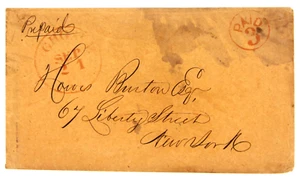 Prepaid
PAID
3
Howes Burton Esq
67 Liberty Street
New York